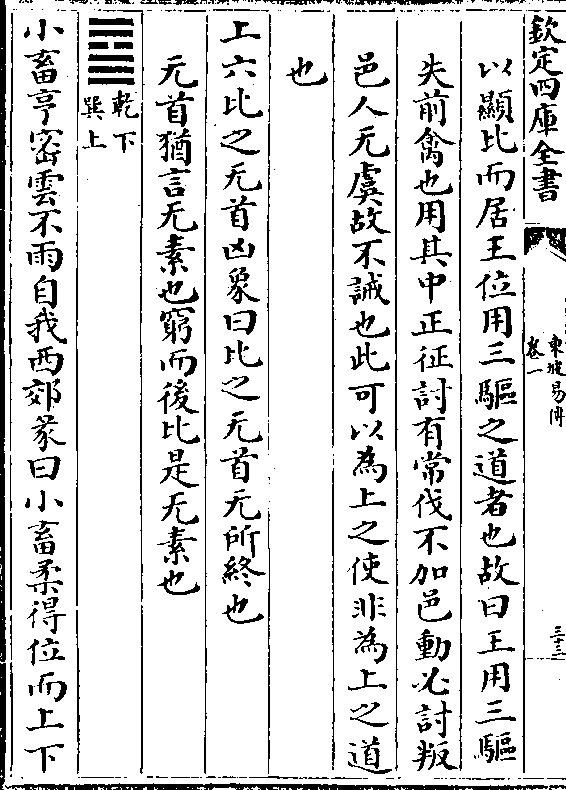 欽定四庫全書
東坡易傳
卷一
三十三
以顯比而居王位用三驅之道者也故曰王用三驅
失前禽也用其中正征討有常伐不加邑動必討叛
邑人无虞故不誡也此可以為上之使非為上之道
也
上六比之无首凶象曰比之无首无所終也
无首猶言无素也窮而後比是无素也
乾下
巽上
小畜亨密雲不雨自我西郊彖曰小畜柔得位而上下